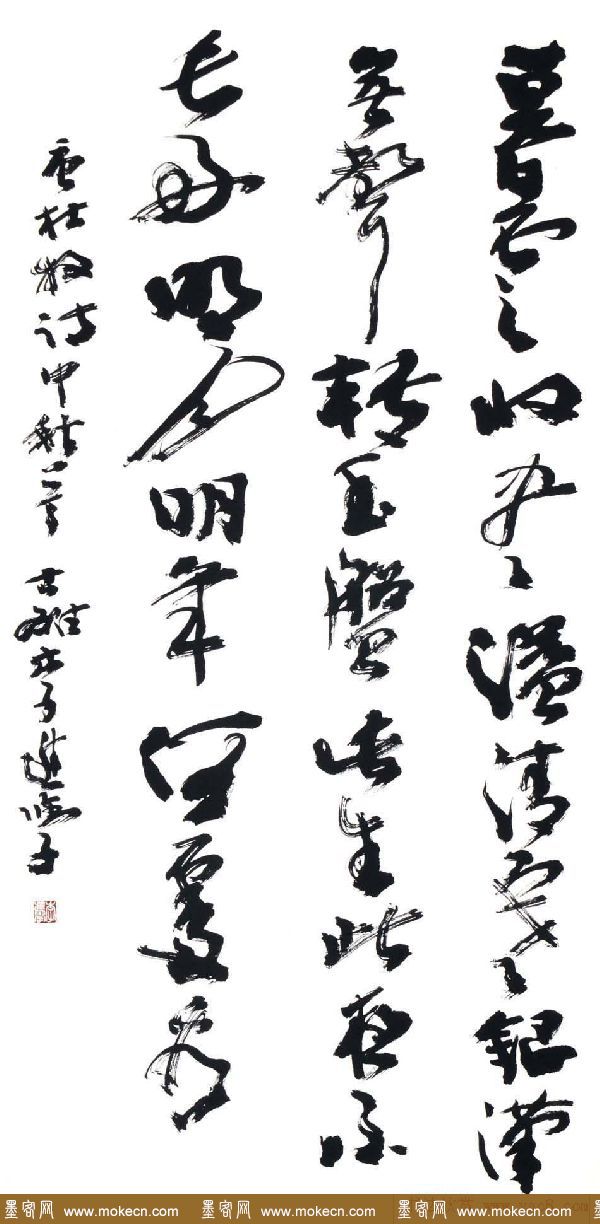 暮雲收尽溢清寒銀漢
無聲轉玉盤此生此夜不
長好明月明年何處看
唐杜牧诗中秋一首
墨客网 www.mokecn.com 墨客网 www.mokecn.com 墨客网 www.mokecn.com 墨客网